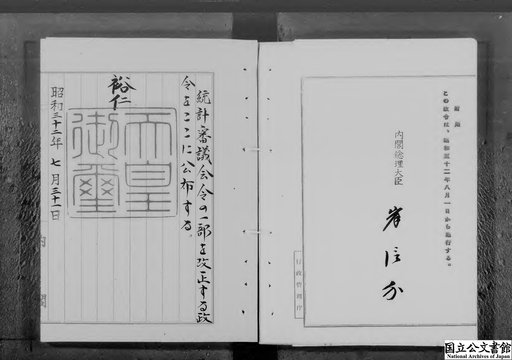 附則
この政令は、昭和三十二年八月一日から施行する。
内閣総理大臣
岸信介
行政管理庁
統計審議会令の一部を改正する政
令をここに公布する。
裕仁
天皇
御璽
昭和三十二年七月三十一日
内閣
国立公文書館
National Archives of Japan